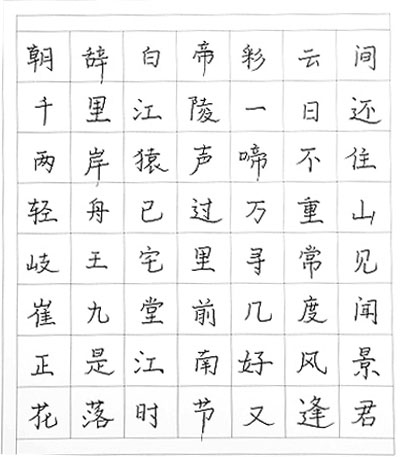 朝辞白帝彩云间
千里江陵一日还
两岸猿声啼不住
轻舟已过万重山
岐王宅里寻常见
崔九堂前几度闻
正是江南好风景
花落时节又逢君